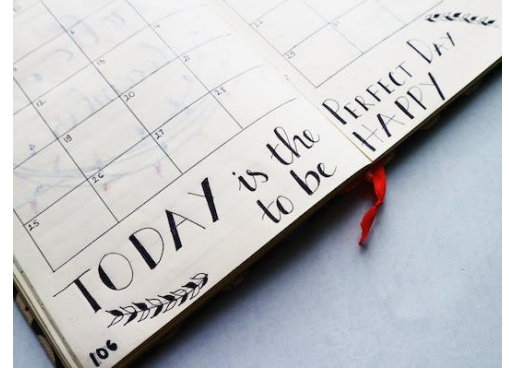 11
12
20
21
18
19
27
28
25
26
29
TODAY is the PERFECT DAY
to be HAPPY
106